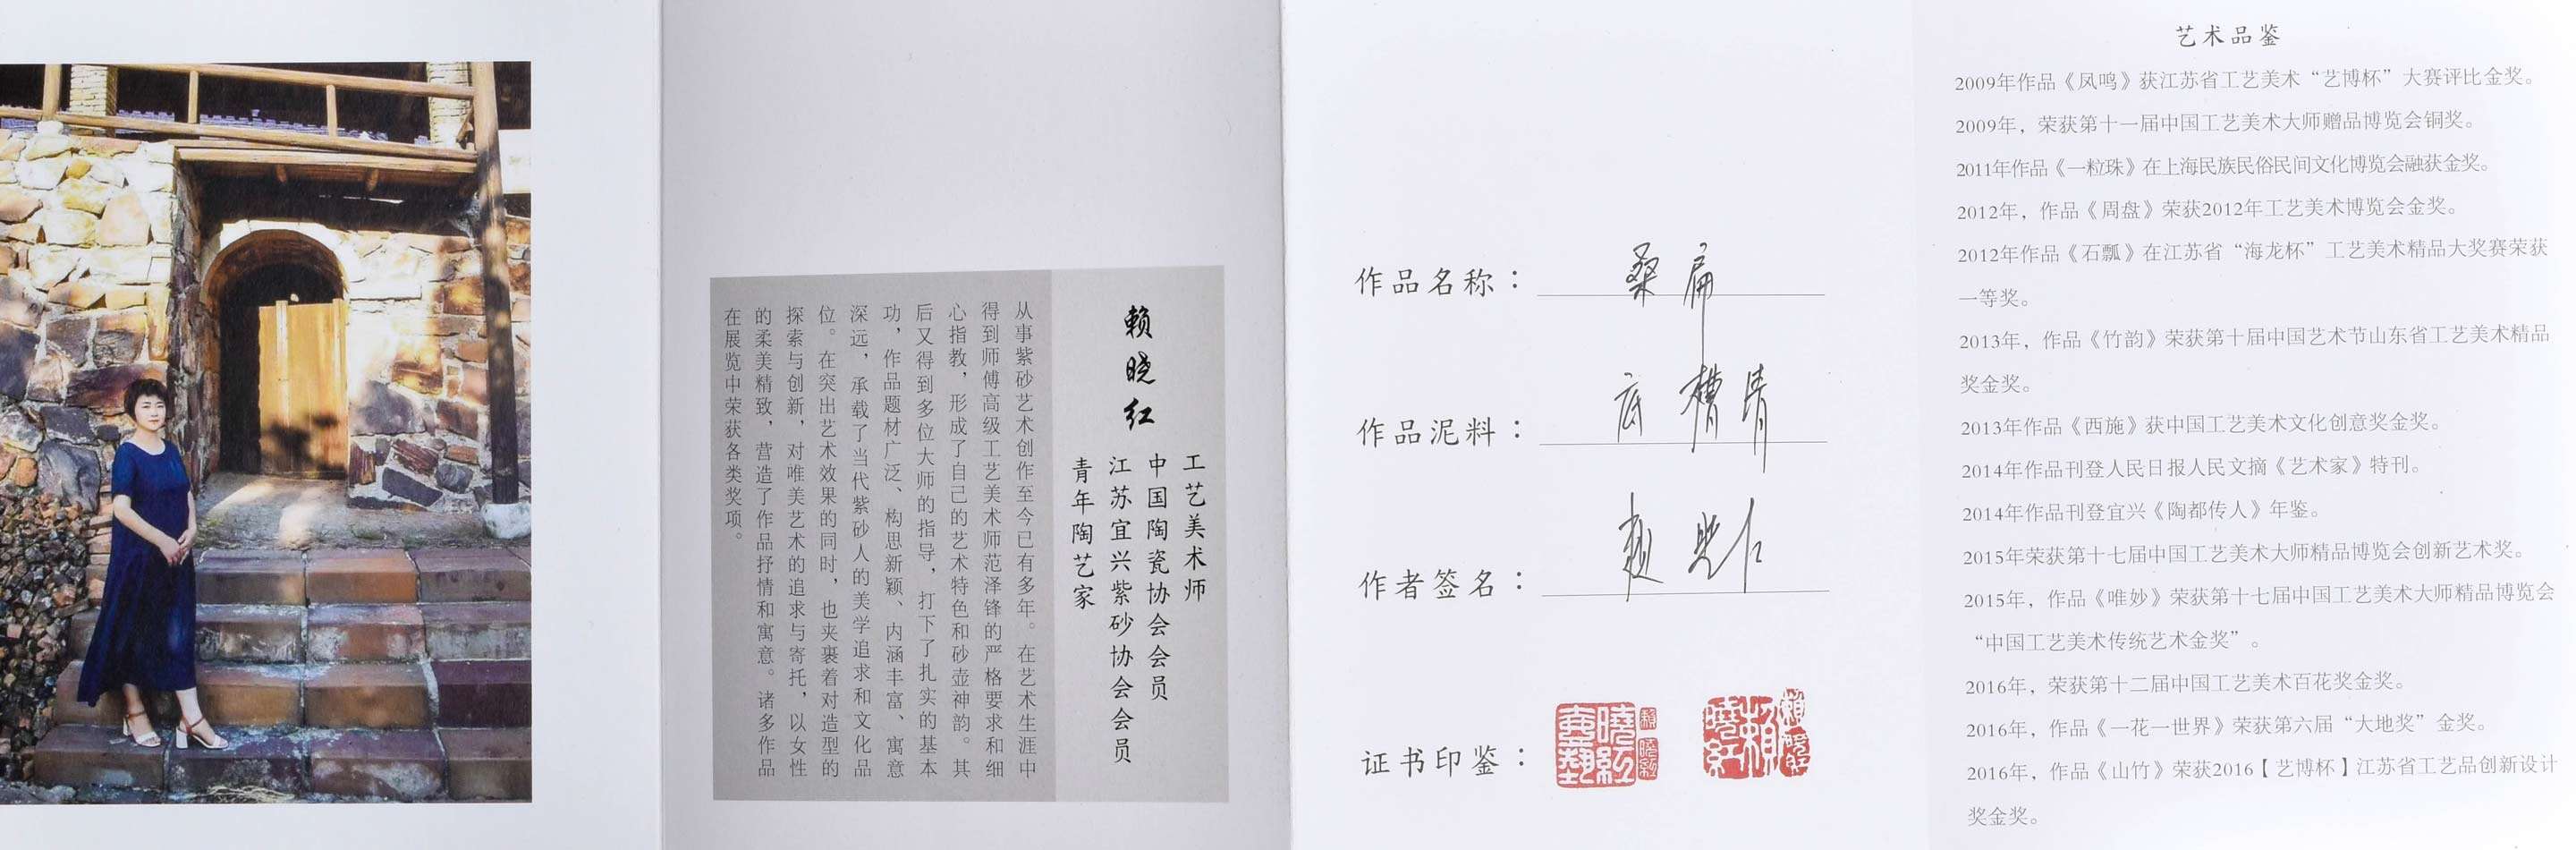 赖晓红
工艺美术师
中国陶瓷协会会员
江苏宜兴紫砂协会会员
青年陶艺家
从事紫砂艺术创作至今已有多年。在艺术生涯中
得到师傅高级工艺美术师范泽锋的严格要求和细
心指教，形成了自己的艺术特色和砂壶神韵。其
后又得到多位大师的指导，打下了扎实的基本
功，作品题材广泛、构思新颖、内涵丰富、寓意
深远，承载了当代紫砂人的美学追求和文化品
位。在突出艺术效果的同时，也夹裹着对造型的
探索与创新，对唯美艺术的追求与寄托，以女性
的柔美精致，营造了作品抒情和寓意。诸多作品
在展览中荣获各类奖项。
作品名称：桑扁
作品泥料：底槽清
作者签名：赖晓红
证书印鉴：
艺术品鉴
2009年作品《凤鸣》获江苏省工艺美术“艺博杯”大赛评比金奖。
2009年，荣获第十一届中国工艺美术大师赠品博览会铜奖。
2011年作品《一粒珠》在上海民族民俗民间文化博览会融获金奖。
2012年，作品《周盘》荣获2012年工艺美术博览会金奖。
2012年作品《石瓢》在江苏省“海龙杯”工艺美术精品大奖赛荣获
一等奖。
2013年，作品《竹韵》荣获第十届中国艺术节山东省工艺美术精品
奖金奖。
2013年作品《西施》获中国工艺美术文化创意奖金奖。
2014年作品刊登人民日报人民文摘《艺术家》特刊。
2014年作品刊登宜兴《陶都传人》年鉴。
2015年荣获第十七届中国工艺美术大师精品博览会创新艺术奖。
2015年，作品《唯妙》荣获第十七届中国工艺美术大师精品博览会
“中国工艺美术传统艺术金奖”。
2016年，荣获第十二届中国工艺美术百花奖金奖。
2016年，作品《一花一世界》荣获第六届“大地奖”金奖。
2016年，作品《山竹》荣获2016【艺博杯】江苏省工艺品创新设计
奖金奖。